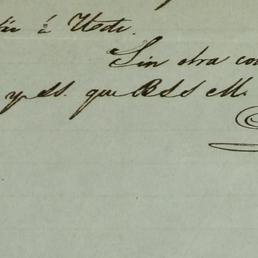 é Uste.
Sin otra co
y SS. que BSSM.